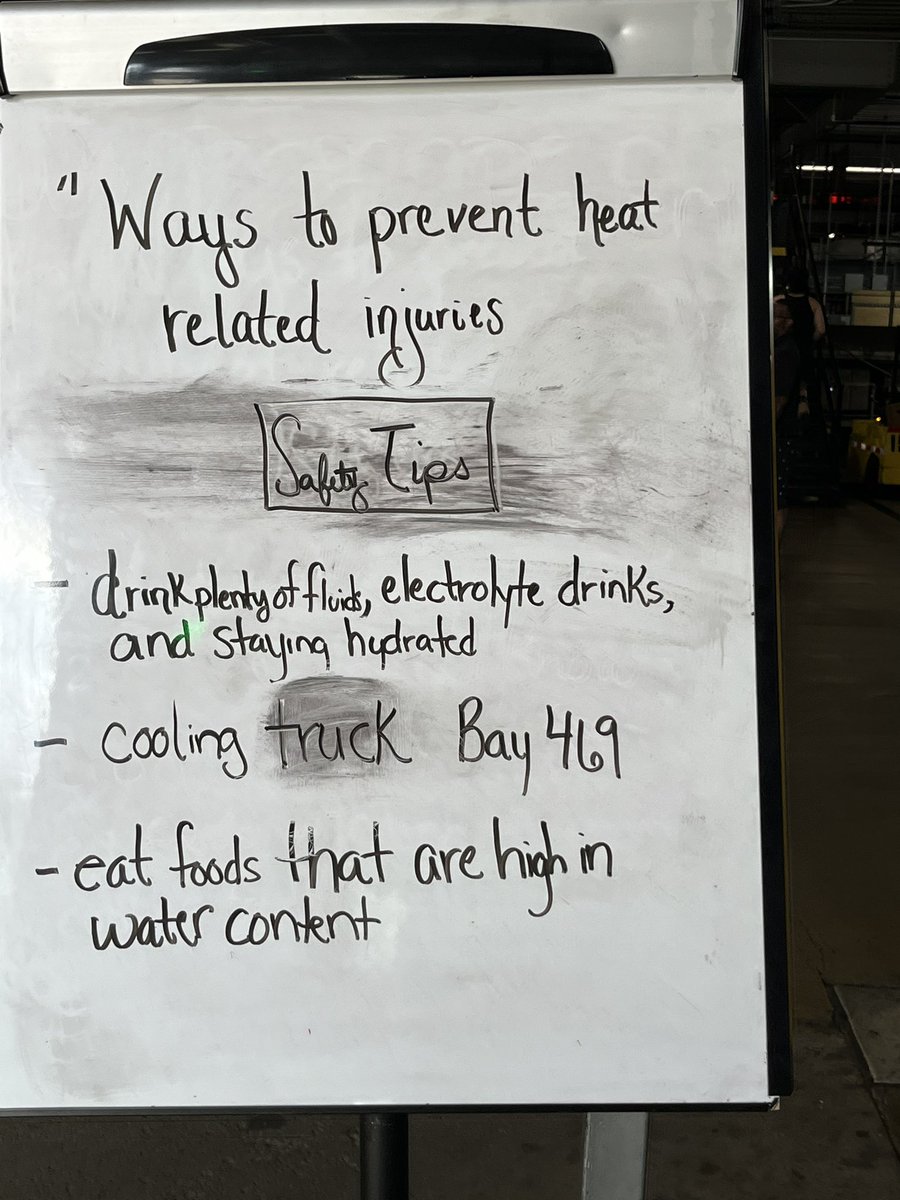 " Ways to prevent heat
related injuries
Safety Tips
- drink plenty of fluids, electrolyte drinks,
and staying hydrated
- cooling truck Bay 469
- eat foods that are high in
water content